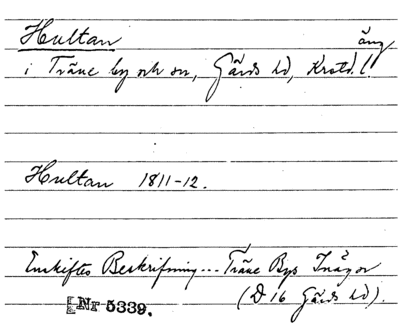 Hultan äng
i Träne by och sn, Gärds hd, Krstd. l.
Hultan 1811-12.
Enskiftes Beskrifning... Träne Bys Inägor
(D 16 Gärds hd).
Nr 5339.